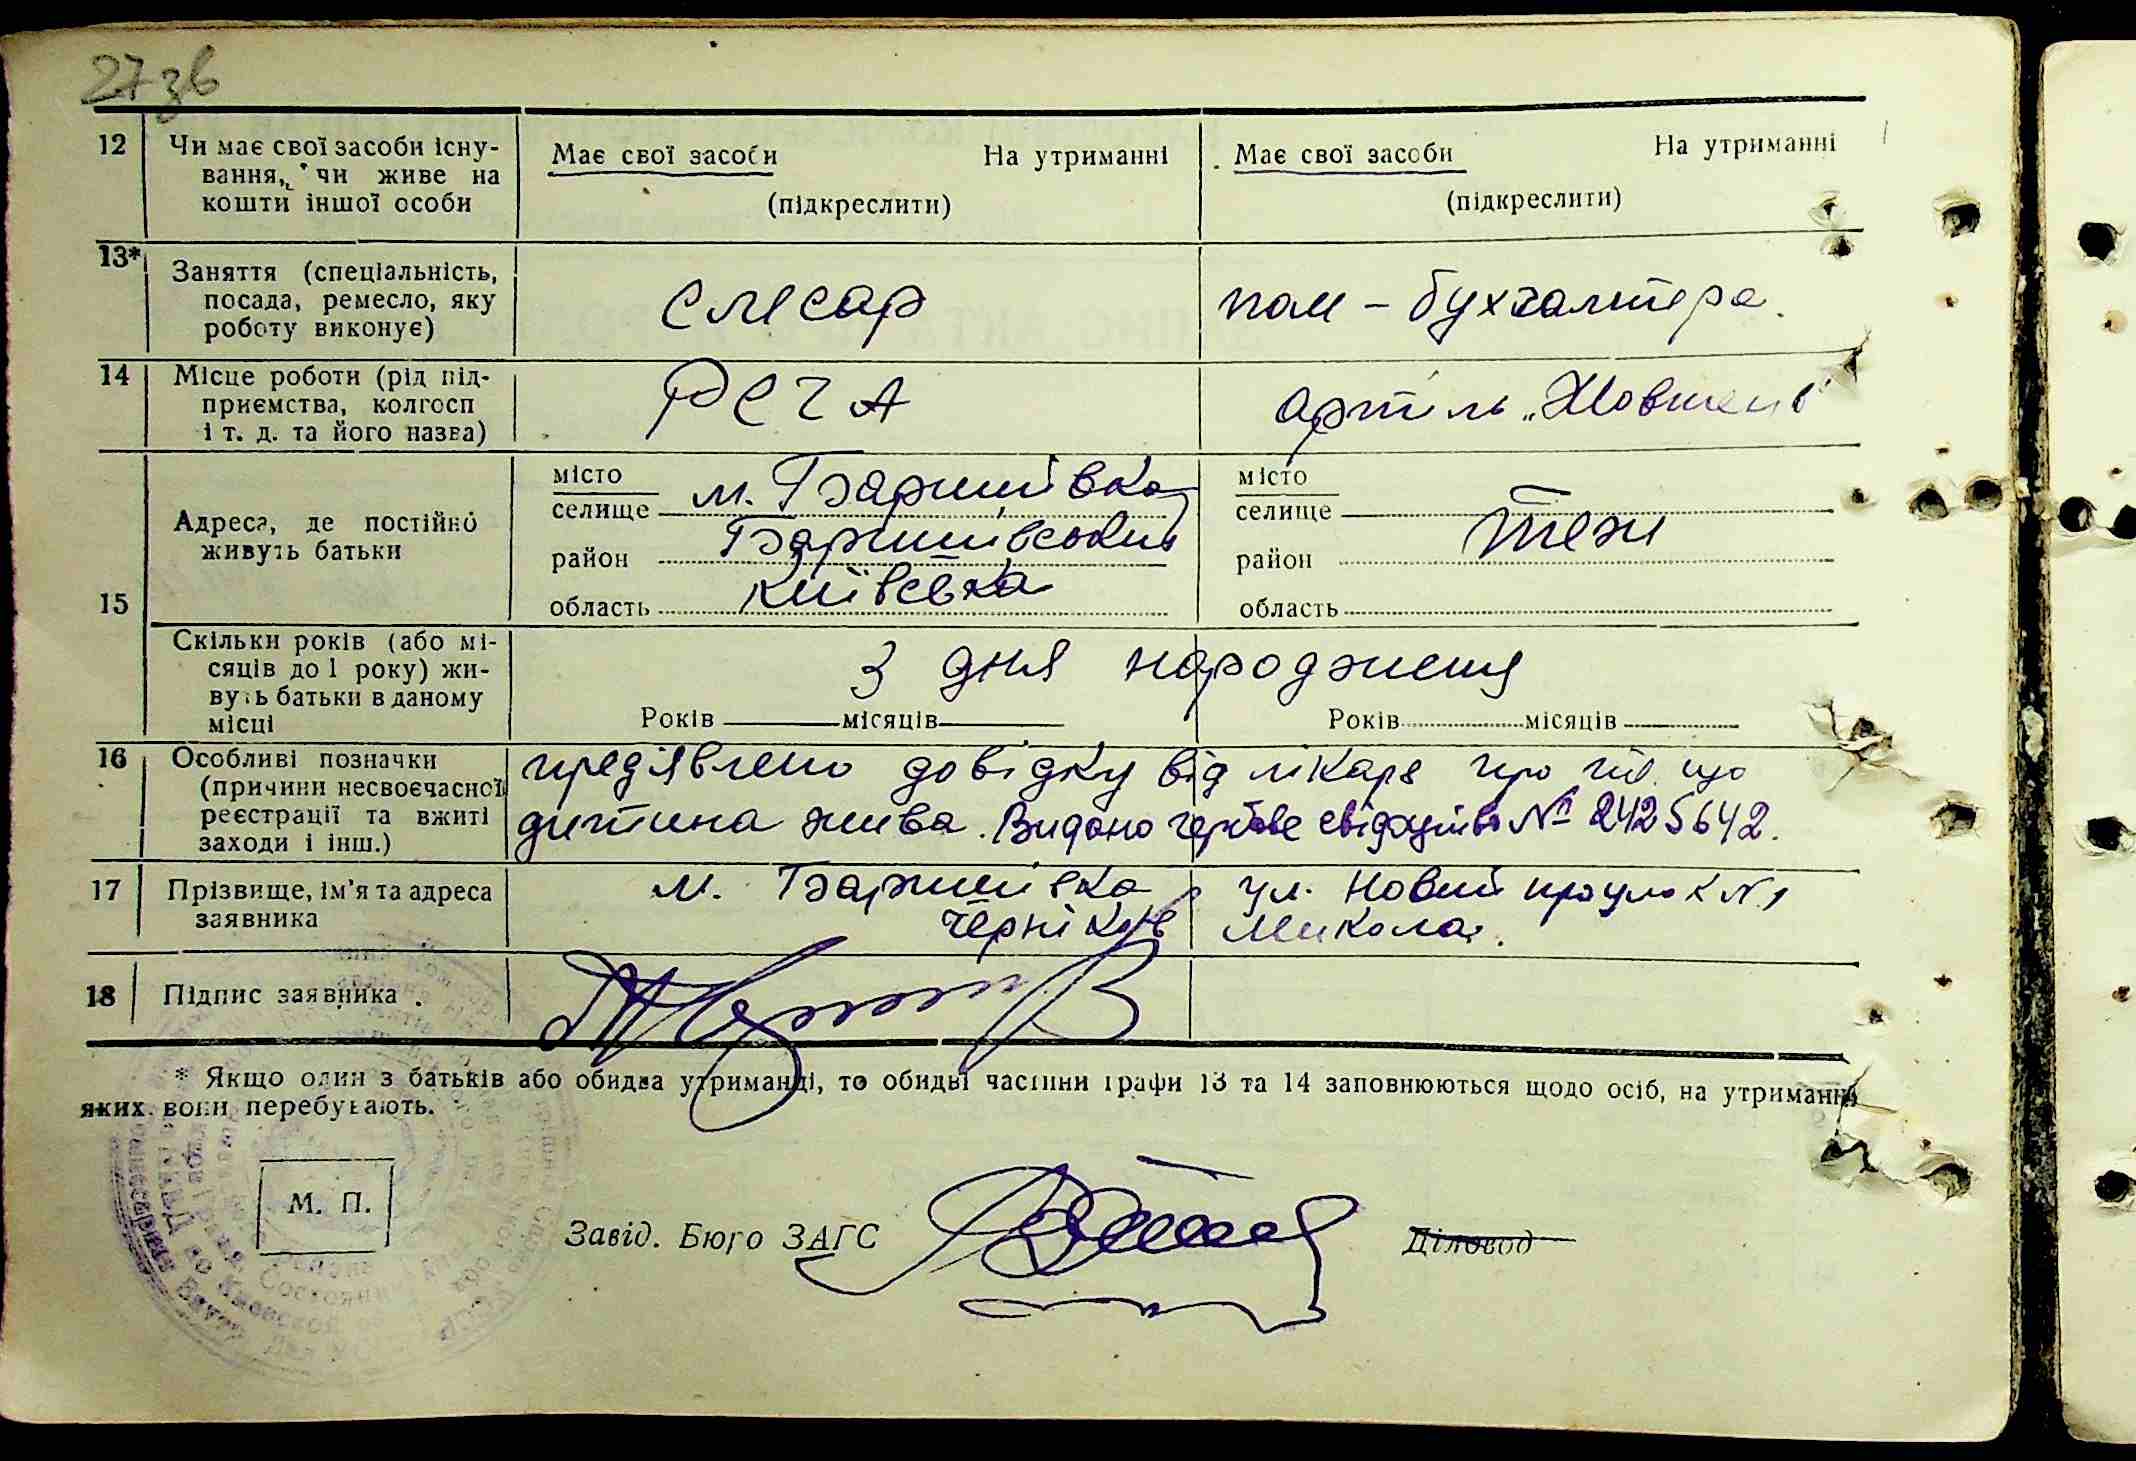 27зв
12 Чи має свої засоби існу-
вання, чи живе на
кошти іншої особи
Має свої засоби На утриманні
(підкреслити)
Має свої засоби На утриманні
(підкреслити)
13* Заняття (спеціальність,
посада, ремесло, яку
роботу виконує)
слєсар
пом - бухгалтера.
14 Місце роботи (рід під-
приємства, колгосп
і т. д. та його назва)
артіль „Жовтень"
15 Адреса, де постійно
живуть батьки
місто
селище м. Баришівка
район Баришівський
область Київська
місто
селище
район теж
область
Скільки років (або мі-
сяців до 1 року) жи-
вуть батьки в даному
місці
З дня народження
Років місяців
Років місяців
16 Особливі позначки
(причини несвоєчасної
реєстрації та вжиті
заходи і інш.)
предʼявлено довідку від лікаря про те що
дитина жива. Видано гербове свідоцтво № 2425642.
17 Прізвище, ім'я та адреса
заявника
м. Баришівка ул. Новий проулок №1
Черніков Микола.
18 Підпис заявника .
* Якщо один з батьків або обидва утриманці, то обидві частини графи 13 та 14 заповнюються щодо осіб, на утриманні
яких вони перебувають.
М. П.
Завід. Бюро ЗАГС
Діловод